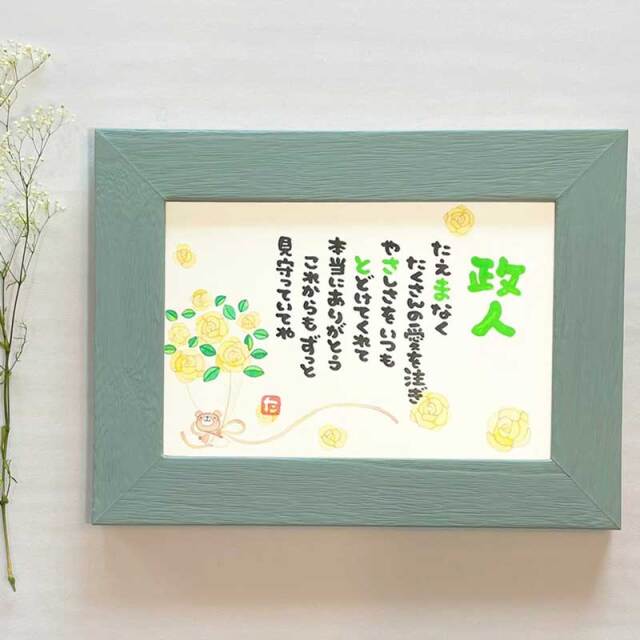 政人
たえまなく
たくさんの愛を注ぎ
やさしさをいつも
とどけてくれて
本当にありがとう
これからもずっと
見守っていてね
た